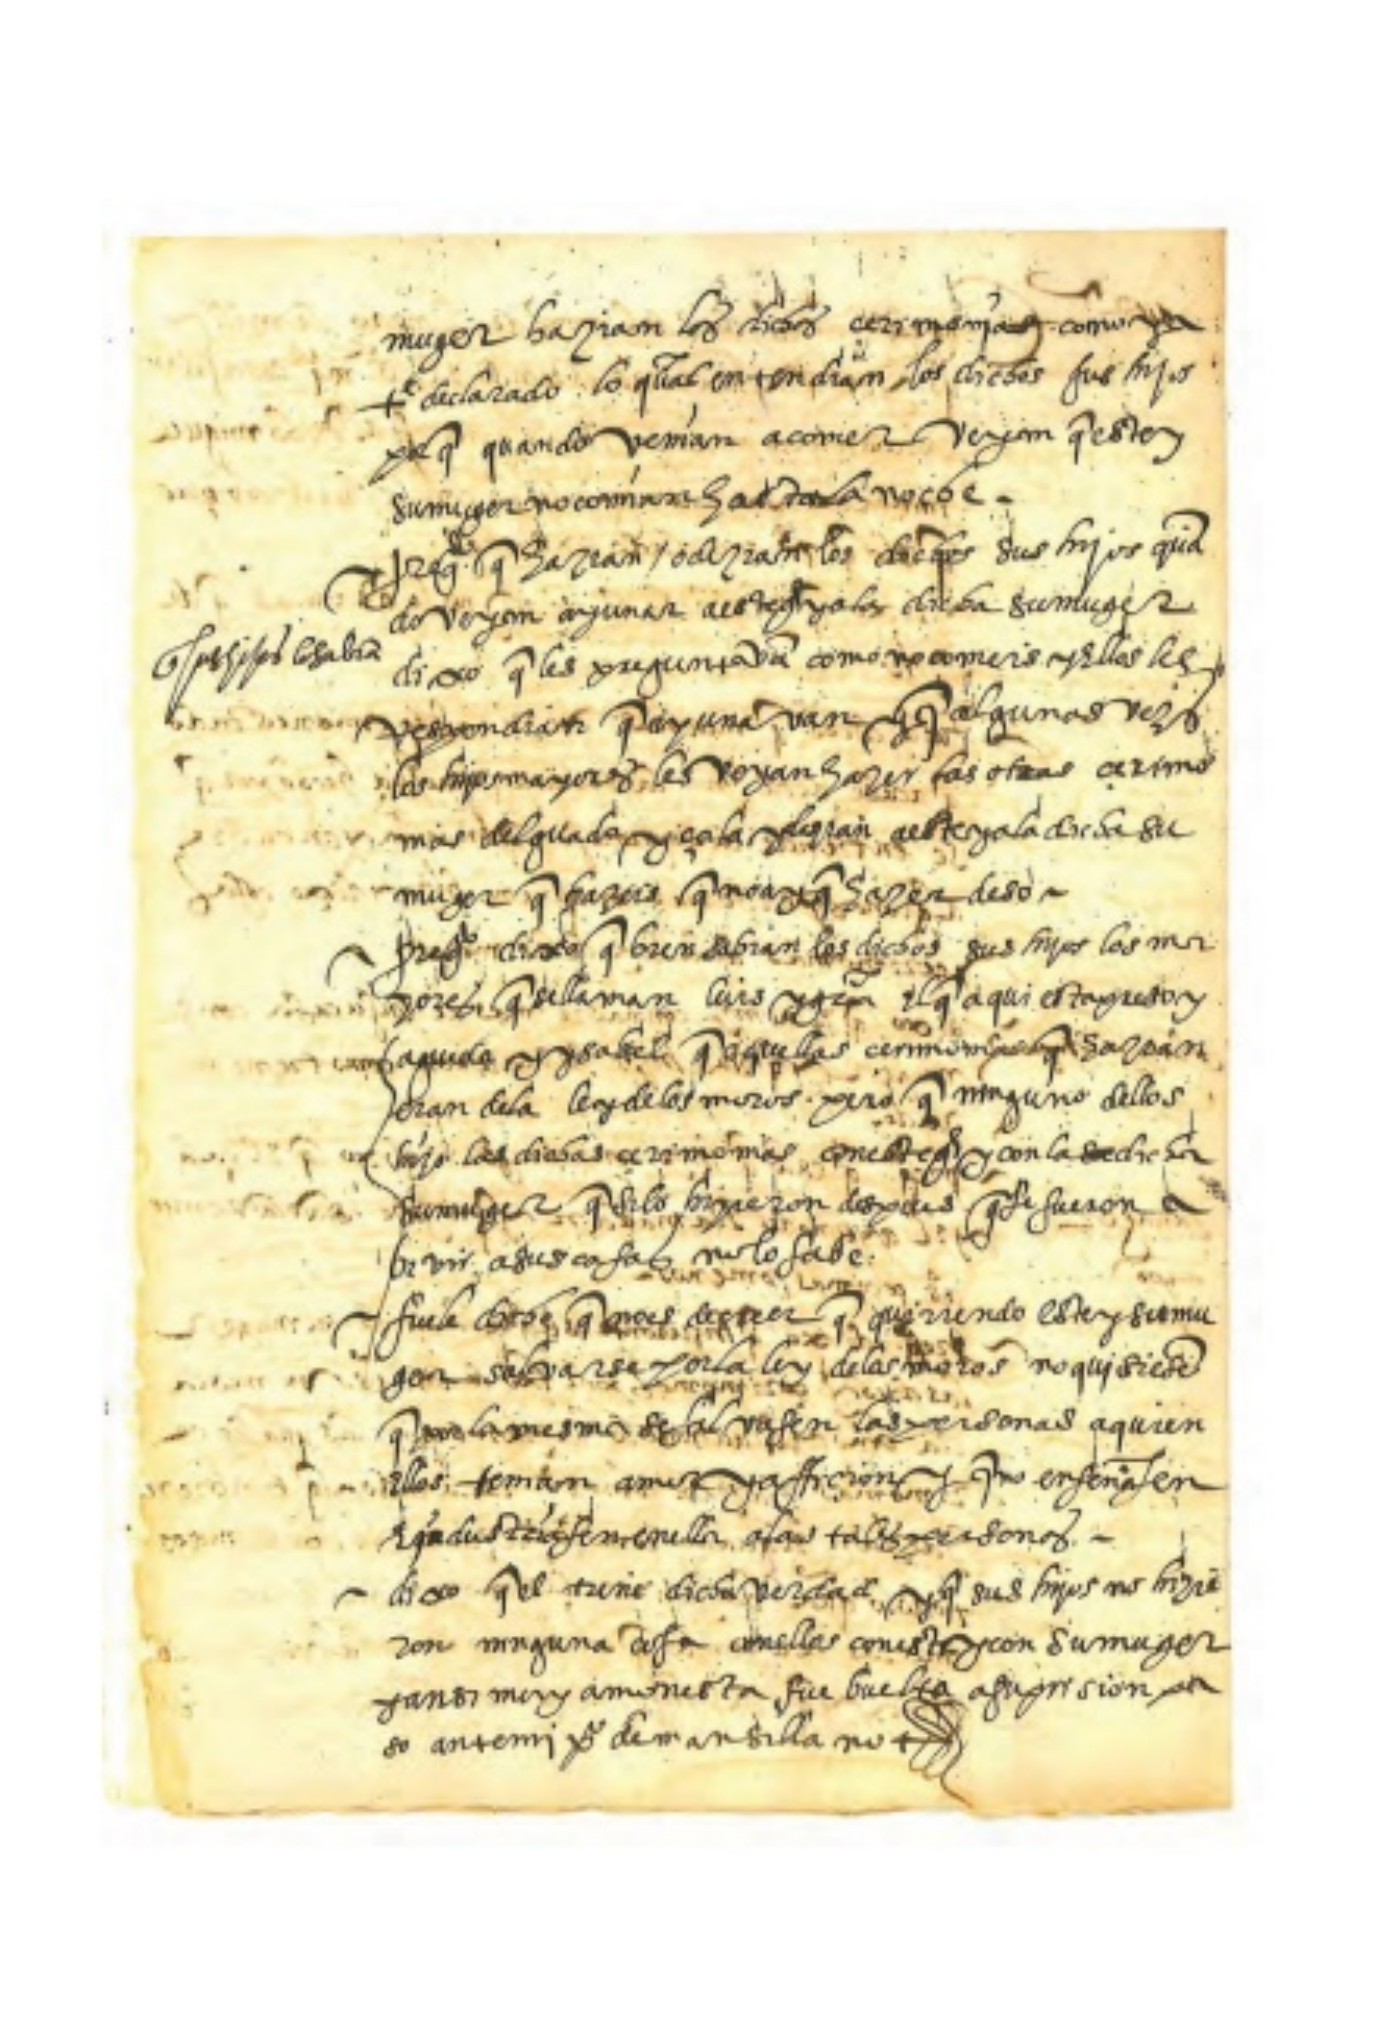 muger hazian las dichas cerimonias como
tº declarado lo qual entendian los dichos sus hijos
porq̃ quando venian a comer veyan q̃ este y
su muger no comian hasta la noche
pregdo q̃ hazian / o dezian los dichos sus hijos quã
do veyan ayunar a este y a la dicha su muger
dixo q̃ les preguntavã como no comeis y ellos les
respondian q̃ ayunavan y q̃ algunas vezes
los hijos mayores les veyan hazer las otras cerimo
nias del guado y çala y dezian a este y a la dicha su
muger q̃ hazeis q̃ no ay q̃ hazer deso
pregdo dixo q̃ bien sabian los dichos sus hijos los ma
yores q̃ se llaman luis y el q̃ aqui esta preso y
agueda y ysabel q̃ aquellas cerimonias q̃ hazian
eran de la ley de los moros pero q̃ ninguno dellos
hizo las dichas cerimonias con este y con la dicha
su muger q̃ si lo hizieron despues q̃ se fueron a
bivir a sus casas no lo sabe.
fuele dicho q̃ no es de creer q̃ queriendo este y su mu
ger salvarse por la ley de los moros no quisiesẽ
q̃ por la mesma se salvasen las personas a quien
ellos tenian amor y afficion y q̃ no enseñasen
e yndustriasen en ella a las tales personas
dixo q̃ el tiene dicha verdad y q̃ sus hijos no hizie
ron ninguna cosa con ellos con este y con su muger
y ansi muy amonestado fue buelto a su prision pa
so ante mi pº de mansilla not